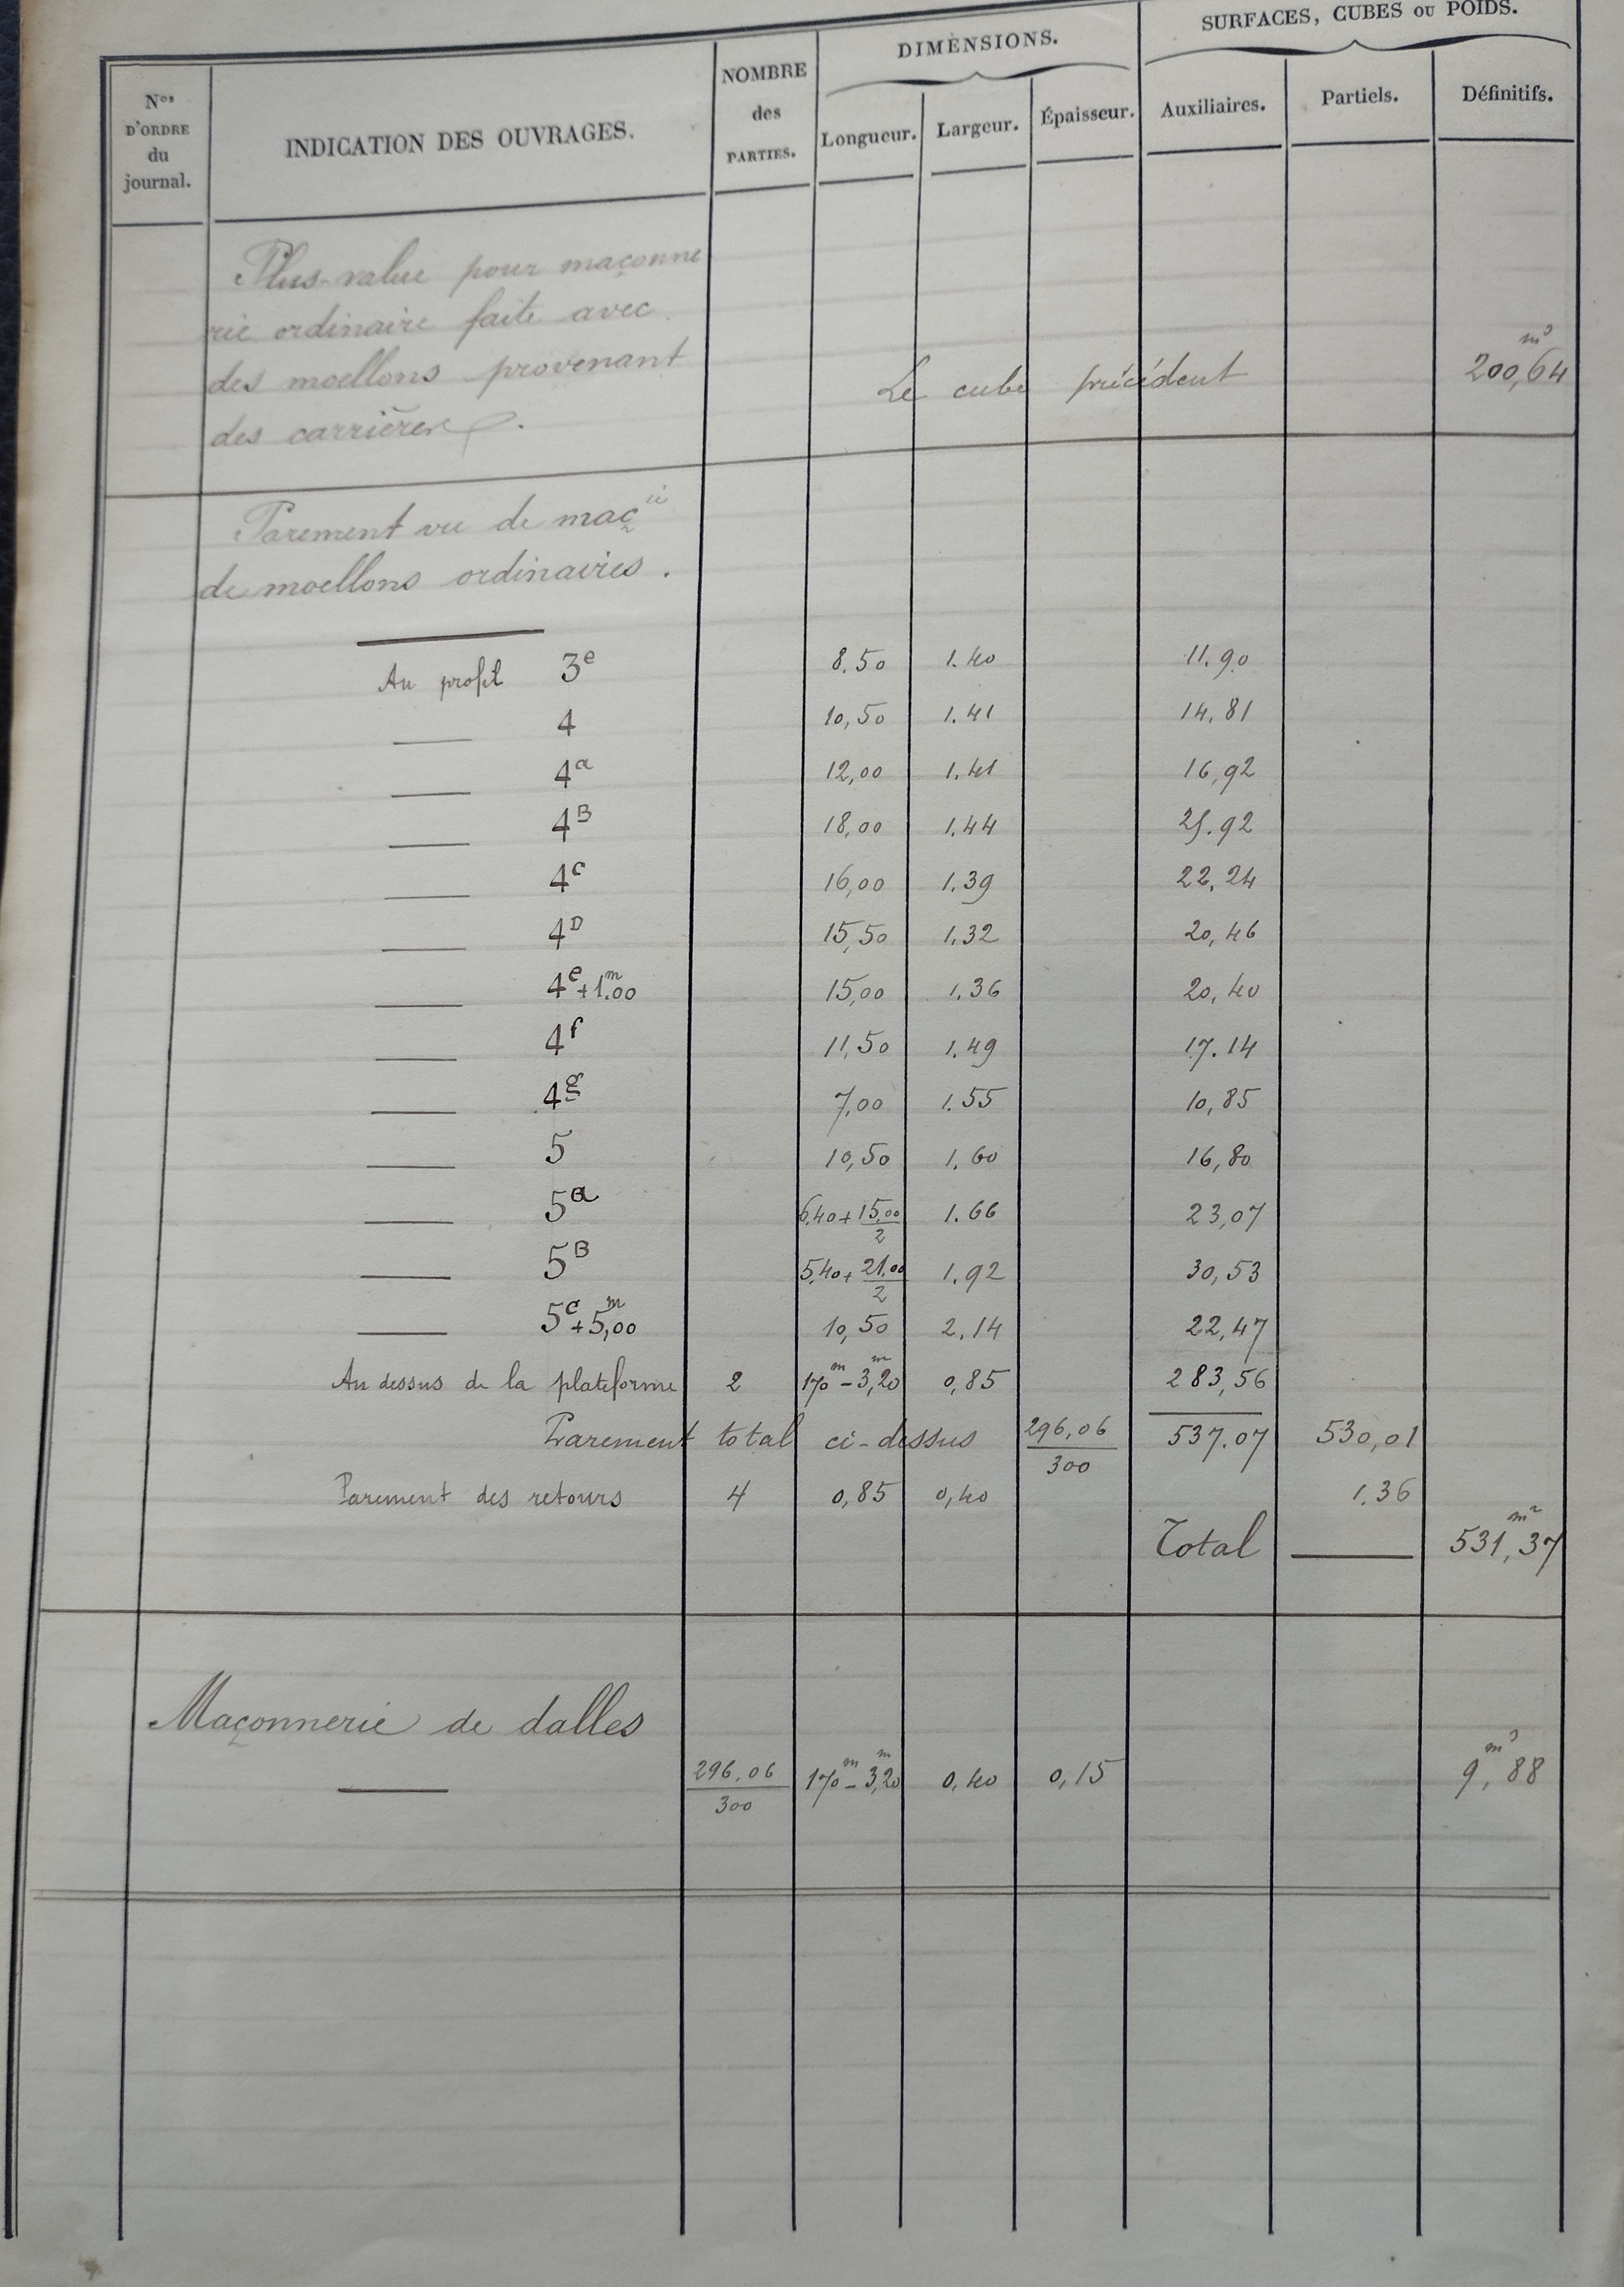 SURFACES, CUBES OU POIDS.
DIMENSIONS.
Nos D'ORDRE du journal. INDICATION DES OUVRAGES. NOMBRE des PARTIES. Longueur. Largeur. Épaisseur. Auxiliaires. Partiels. Définitifs.
Plus-value pour maçonne
rie ordinaire faite avec
des moellons provenant Le cube précédent 200,64 m3
des carrières.
Parement vu de maç ie
de moellons ordinaires.
Au profil 3e 8.50 1.40 11.90
— 4 10,50 1.41 14.81
— 4a 12,00 1.41 16,92
— 4B 18,00 1.44 25.92
— 4c 16,00 1.39 22,24
— 4D 15,50 1.32 20,46
— 4e + 1m.00 15,00 1.36 20,40
— 4f 11,50 1.49 17.14
— 4g 7,00 1.55 10,85
— 5 10,50 1.60 16,80
— 5a 6,40 + 15,00/2 1.66 23,07
— 5B 5,40 + 21.00/2 1.92 30,53
— 5c + 5m,00 10,50 2.14 22,47
Au dessus de la plateforme 2 170m - 3m,20 0,85 283,56
Parement total ci-dessus 296,06/300 537.07 530,01
Parement des retours 4 0,85 0,40 1.36
Total — 531,37 m2
Maçonnerie de dalles
— 296.06/300 170m - 3m,20 0,40 0,15 9,88 m3